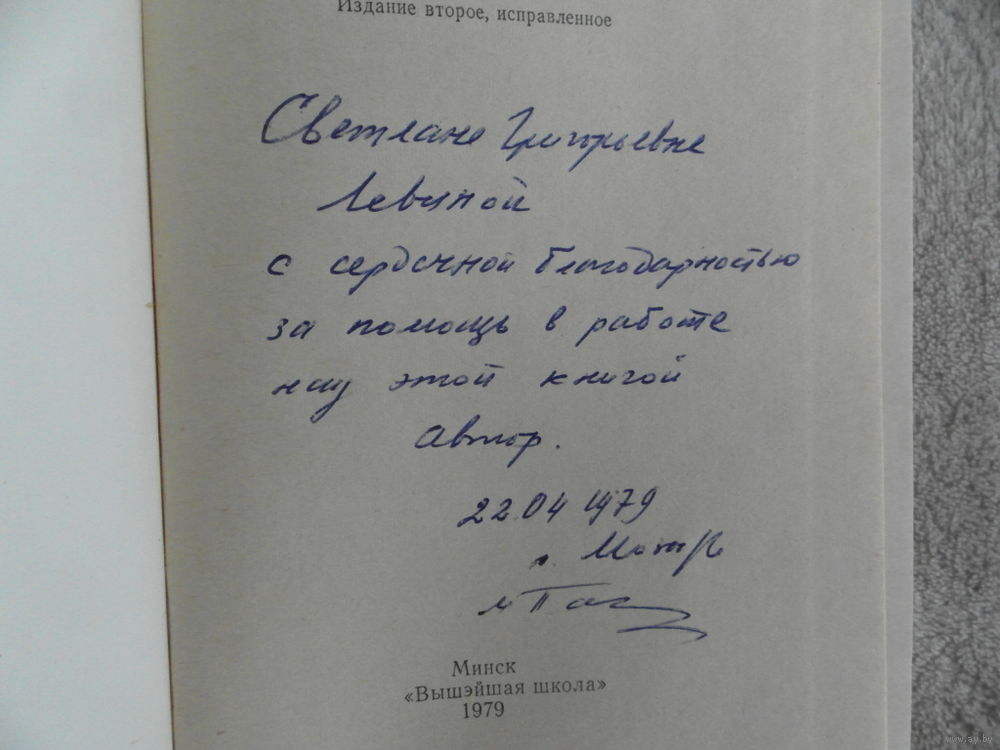 Издание второе, исправленное
Светлане Григорьевне
Левиной
с сердечной благодарностью
за помощь в работе
над этой книгой
Автор.
22.04 1979
г. Мозырь
Минск
«Вышэйшая школа»
1979
www.ay.by